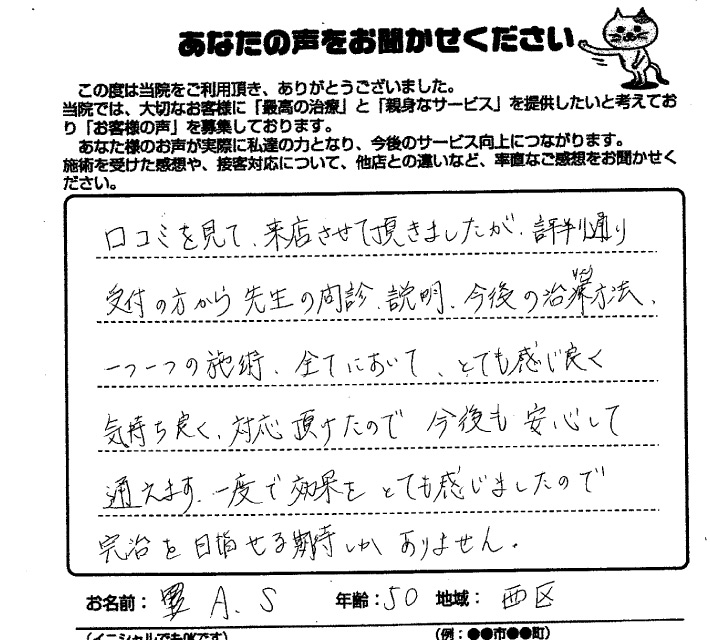 あなたの声をお聞かせください
この度は当院をご利用頂き、ありがとうございました。
当院では、大切なお客様に「最高の治療」と「親身なサービス」を提供したいと考えてお
り「お客様の声」を募集しております。
あなた様のお声が実際に私達の力となり、今後のサービス向上につながります。
施術を受けた感想や、接客対応について、他店との違いなど、率直なご感想をお聞かせく
ださい。
口コミを見て、来店させて頂きましたが、評判通り
受付の方から先生の問診、説明、今後の治療方法、
一つ一つの施術、全てにおいて、とても感じ良く
気持ち良く、対応頂けたので 今後も 安心して
通えます。一度で効果を とても感じましたので
完治を目指せる期待しか ありません。
お名前: A.S 年齢:50 地域: 西区
(イニシャルでもOKです) (例:●●市●●町)